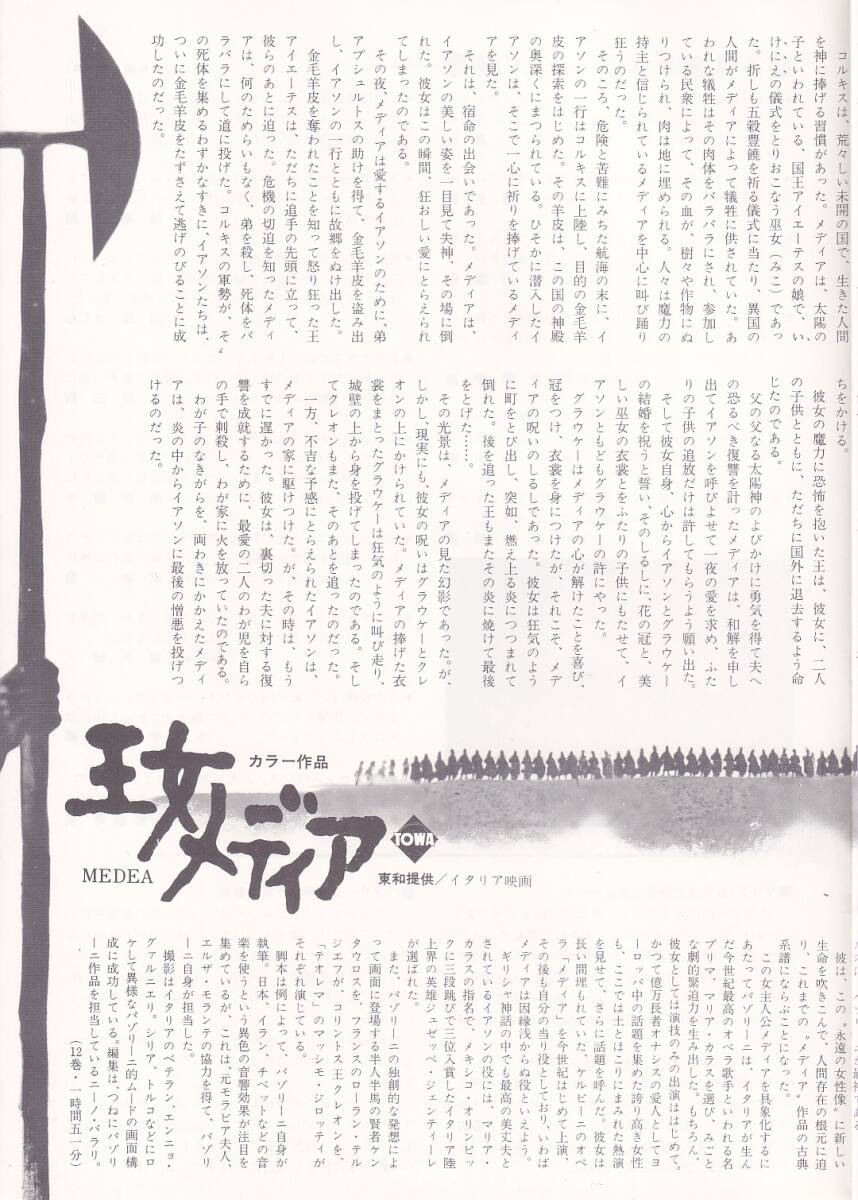 コルキスは、荒々しい未開の国で、生きた人間
を神に捧げる習慣があった。メディアは、太陽の
子といわれている、国王アイエーテスの娘で、い
けにえの儀式をとりおこなう巫女（みこ）であっ
た。折しも五穀豊饒を祈る儀式に当たり、異国の
人間がメディアによって犠牲に供されていた。あ
われな犠牲はその肉体をバラバラにされ、参加し
ている民衆によって、その血が、樹々や作物にぬ
りつけられ、肉は地に埋められる。人々は魔力の
持主と信じられているメディアを中心に叫び踊り
狂うのだった。
そのころ、危険と苦難にみちた航海の末に、イ
アソンの一行はコルキスに上陸し、目的の金毛羊
皮の探索をはじめた。その羊皮は、この国の神殿
の奥深くにまつられている。ひそかに潜入したイ
アソンは、そこで一心に祈りを捧げているメディ
アを見た。
それは、宿命の出会いであった。メディアは、
イアソンの美しい姿を一目見て失神、その場に倒
れた。彼女はこの瞬間、狂おしい愛にとらえられ
てしまったのである。
その夜、メディアは愛するイアソンのために、弟
アプシュルトスの助けを得て、金毛羊皮を盗み出
し、イアソンの一行とともに故郷をぬけ出した。
金毛羊皮を奪われたことを知って怒り狂った王
アイエーテスは、ただちに追手の先頭に立って、
彼らのあとに迫った。危機の切迫を知ったメディ
アは、何のためらいもなく、弟を殺し、死体をバ
ラバラにして道に投げた。コルキスの軍勢が、そ〟
の死体を集めるわずかなすきに、イアソンたちは、
ついに金毛羊皮をたずさえて逃げのびることに成
功したのだった。
ちをかける。
彼女の魔力に恐怖を抱いた王は、彼女に、二人
の子供とともに、ただちに国外に退去するよう命
じたのである。
父の父なる太陽神のよびかけに勇気を得て夫へ
の恐るべき復讐を計ったメディアは、和解を申し
出てイアソンを呼びよせて一夜の愛を求め、ふた
りの子供の追放だけは許してもらうよう願い出た。
そして彼女自身、心からイアソンとグラウケー
の結婚を祝うと誓い、そのしるしに、花の冠と、美
しい巫女の衣裳とをふたりの子供にもたせて、イ
アソンともどもグラウケーの許にやった。
グラウケーはメディアの心が解けたことを喜び、
冠をつけ、衣裳を身につけたが、それこそ、メデ
ィアの呪いのしるしであった。彼女は狂気のよう
に町をとび出し、突如、燃え上る炎につつまれて
倒れた。後を追った王もまたその炎に焼けて最後
をとげた……。
その光景は、メディアの見た幻影であった。が、
しかし、現実にも、彼女の呪いはグラウケーとクレ
オンの上にかけられていた。メディアの捧げた衣
裳をまとったグラウケーは狂気のように叫び走り、
城壁の上から身を投げてしまったのである。そし
てクレオンもまた、そのあとを追ったのだった。
一方、不吉な予感にとらえられたイアソンは、
メディアの家に駆けつけた。が、その時は、もう
すでに遅かった。彼女は、裏切った夫に対する復
讐を成就するために、最愛の二人のわが児を自ら
の手で刺殺し、わが家に火を放っていたのである。
わが子のなきがらを、両わきにかかえたメディ
アは、炎の中からイアソンに最後の憎悪を投げつ
けるのだった。
王女メディア
カラー作品
MEDEA
TOWA
東和提供／イタリア映画
彼は、この〝永遠の女性像〟に新しい
生命を吹きこんで、人間存在の根元に迫
り、これまでの〝メディア〟作品の古典
系譜にならぶことになった。
この女主人公メディアを具象化するに
あたってパゾリーニは、イタリアが生ん
だ今世紀最高のオペラ歌手といわれる名
プリマ、マリア・カラスを選び、みごと
な劇的緊迫力を生み出した。もちろん、
彼女としては演技のみの出演ははじめて。
かつて億万長者オナシスの愛人としてヨ
ーロッパ中の話題を集めた誇り高き女性
も、ここでは土とほこりにまみれた熱演
を見せて、さらに話題を呼んだ。彼女は
長い間埋もれていた、ケルビーニのオペ
ラ「メディア」を今世紀はじめて上演、
その後も自分の当り役としており、いわば
メディアは因縁浅からぬ役といえよう。
ギリシャ神話の中でも最高の美丈夫と
されているイアソンの役には、マリア・
カラスの指名で、メキシコ・オリンピッ
クに三段跳びで三位入賞したイタリア陸
上界の英雄ジュゼッペ・ジェンティーレ
が選ばれた。
また、パゾリーニの独創的な発想によ
って画面に登場する半人半馬の賢者ケン
タウロスを、フランスのローラン・テル
ジエフが、コリントス王クレオンを、
「テオレマ」のマッシモ・ジロッティが
それぞれ演じている。
脚本は例によって、パゾリーニ自身が
執筆。日本、イラン、チベットなどの音
楽を使うという異色の音響効果が注目を
集めているが、これは、元モラビア夫人、
エルザ・モランテの協力を得て、パゾリ
ーニ自身が担当した。
撮影はイタリアのベテラン、エンニョ・
グァルニエリ。シリア、トルコなどにロ
ケして異様なパゾリーニ的ムードの画面構
成に成功している。編集は、つねにパゾリ
ーニ作品を担当しているニーノ・バラリ。
（12巻・一時間五一分）